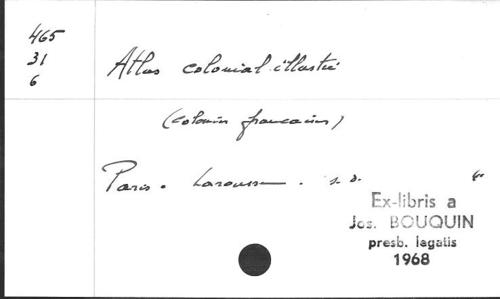 465
31
6
Atlas colonial illustré
(colonies françaises)
Paris. Larousse. s. d. 4°
Ex-libris a
Jos. BOUQUIN
presb. legatis
1968